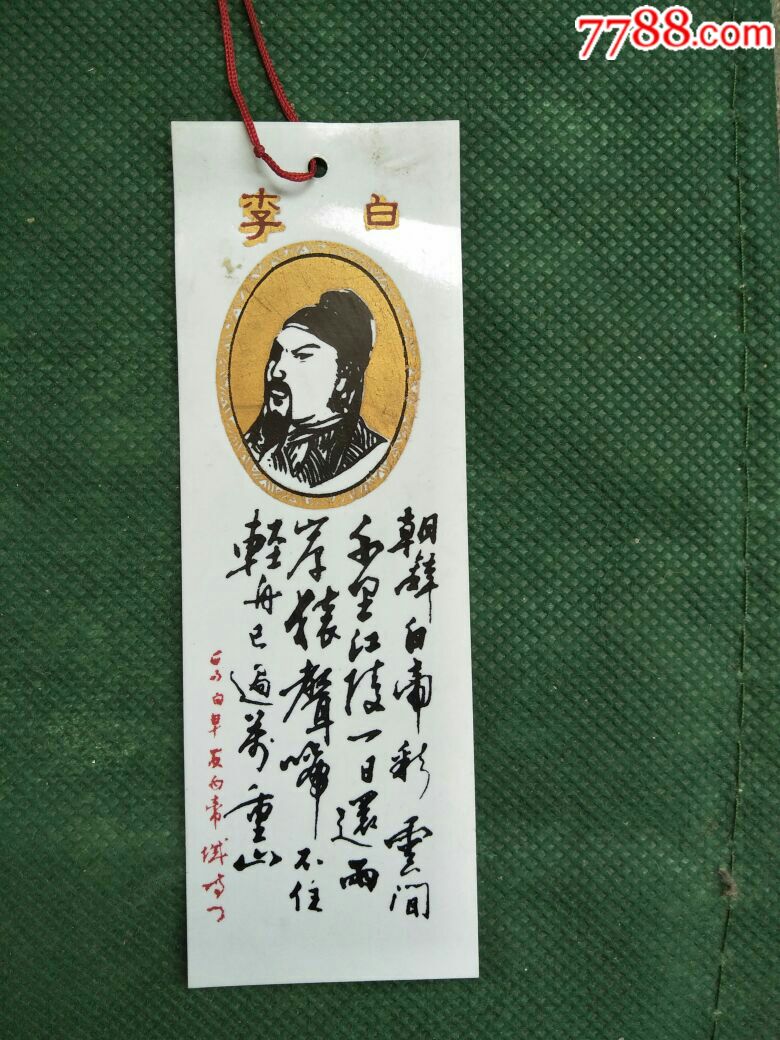 7788.com
李 白
朝辭白帝彩雲間
千里江陵一日還兩
岸猿聲啼不住
輕舟已過萬重山
白早发白帝城